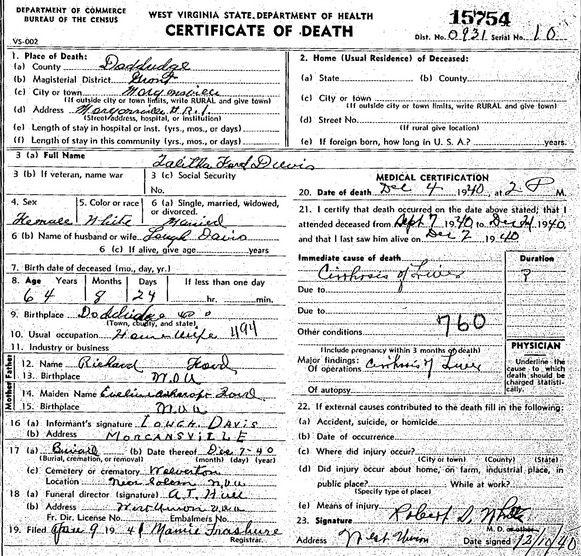 DEPARTMENT OF COMMERCE
BUREAU OF THE CENSUS
VS-002
WEST VIRGINIA STATE DEPARTMENT OF HEALTH
CERTIFICATE OF DEATH
15754
Dist. No. 0931 Serial No. 10
1. Place of Death:
(a) County Doddridge
(b) Magisterial District Grant
(c) City or town Morgansville
(If outside city or town limits, write RURAL and give town)
(d) Address Morgansville # R.1
(Street Address, hospital, or institution)
(e) Length of stay in hospital or inst. (yrs., mos., or days)
(f) Length of stay in this community (yrs., mos., or days)
2. Home (Usual Residence) of Deceased:
(a) State (b) County
(c) City or town
(If outside city or town limits, write RURAL and give town)
(d) Street No.
(If rural give location)
(e) If foreign born, how long in U. S. A.? years.
3 (a) Full Name Talitha Ford Davis
3 (b) If veteran, name war 3 (c) Social Security
No.
4. Sex 5. Color or race 6 (a) Single, married, widowed, or divorced.
Female White Married
6 (b) Name of husband or wife Lough Davis
6 (c) If alive, give age years
7. Birth date of deceased (mo., day, yr.)
8. Age Years Months Days If less than one day
64 8 24 hr. min.
9. Birthplace Doddridge
(Town, county, and state)
10. Usual occupation House Wife 494
11. Industry or business
Father
12. Name Richard Ford
13. Birthplace W.Va
Mother
14. Maiden Name Ford
15. Birthplace W.Va
16 (a) Informant's signature LOUGH DAVIS
(b) Address MORGANSVILLE
17 (a) Burial (b) Date thereof Dec 7-40
(Burial, cremation, or removal) (month) (day) (year)
(c) Cemetery or crematory Wolverton
Location Near Salem W.Va
18 (a) Funeral director (signature) A.T.
(b) Address West Union W.Va
Fr. Dir. License No. Embalmers No.
19. Filed 9 1941 Mamie Trashure
Registrar.
MEDICAL CERTIFICATION
20. Date of death Dec 4 1940, at 2 P M.
21. I certify that death occurred on the date above stated; that I
attended deceased from Sept 7 1940 to Dec 1940,
and that I last saw him alive on Dec 2 1940
Immediate cause of death Duration
Cirrhosis of Liver ?
Due to
Due to
Other conditions 760
(Include pregnancy within 3 months of death)
Major findings:
Of operations Cirrhosis of Liver
Of autopsy
PHYSICIAN
Underline the cause to which death should be charged statistically.
22. If external causes contributed to the death fill in the following:
(a) Accident, suicide, or homicide
(b) Date of occurrence
(c) Where did injury occur?
(City or town) (County) (State)
(d) Did injury occur about home, on farm, industrial place, in
public place? While at work?
(Specify type of place)
(e) Means of injury
23. Signature Robert D. White
M. D. or other
Address West Union Date signed 12/10/40